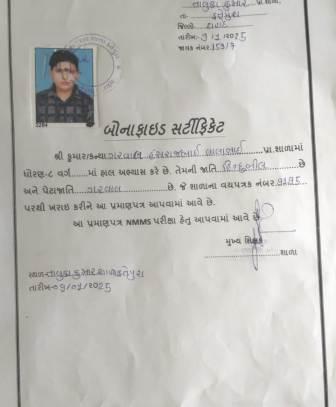 તાલુકા કુમાર પ્રા.શાળા
તા- ફતેપુરા
જિલ્લો દાહોદ
તારીખ-9/1/2025
જાવક નંબર 159/7
3284
બોનાફાઇડ સર્ટીફિકેટ
શ્રી કુમાર/કન્યા ગરવાલ હંસરાજભાઈ લાલાભાઈ પ્રા.શાળામાં
ધોરણ-૮ વર્ગ......માં હાલ અભ્યાસ કરે છે. તેમની જાતિ હિન્દુભીલ છે
અને પેટાજાતિ ગરવાલ છે. જે શાળાના વયપત્રક નંબર 9195
પરથી ખરાઇ કરીને આ પ્રમાણપત્ર આપવામાં આવે છે.
આ પ્રમાણપત્ર NMMS પરીક્ષા હેતુ આપવામાં આવે છે.
મુખ્ય શિક્ષક
શાળા
સ્થળ-તાલુકા કુમાર શાળા ફતેપુરા
તારીખ-09/01/2025